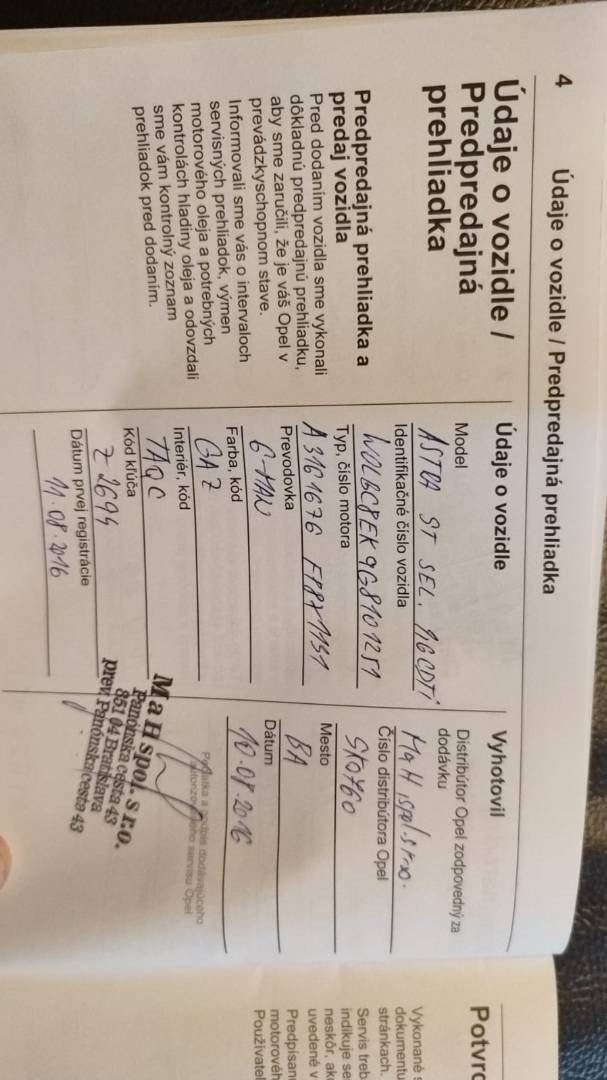 4
Údaje o vozidle / Predpredajná prehliadka
Údaje o vozidle /
Predpredajná
prehliadka
Predpredajná prehliadka a
predaj vozidla
Pred dodaním vozidla sme vykonali
dôkladnú predpredajnú prehliadku,
aby sme zaručili, že je váš Opel v
prevádzkyschopnom stave.
Informovali sme vás o intervaloch
servisných prehliadok, výmen
motorového oleja a potrebných
kontrolách hladiny oleja a odovzdali
sme vám kontrolný zoznam
prehliadok pred dodaním.
Údaje o vozidle
Model
ASTRA ST SEL. 1.6CDTi
Identifikačné číslo vozidla
W0LBC8EK9G8101251
Typ, číslo motora
A3161676
Prevodovka
6-MAN
Farba, kód
GAZ
Interiér, kód
TAQC
Kód kľúča
Z 2694
Dátum prvej registrácie
11.08.2016
Vyhotovil
Distribútor Opel zodpovedný za
dodávku
MaH spol. s r.o.
Číslo distribútora Opel
SK0760
Mesto
BA
Dátum
10.08.2016
Pečiatka a podpis dodávajúceho
autorizovaného servisu Opel
MaH spol. s r.o.
Panónska cesta 43
851 04 Bratislava
prev. Panónska cesta 43
Potvrd
Vykonané s
dokumentu
stránkach.
Servis treb
indikuje se
neskôr, ako
uvedené v
Predpísan
motorovéh
Používateľ